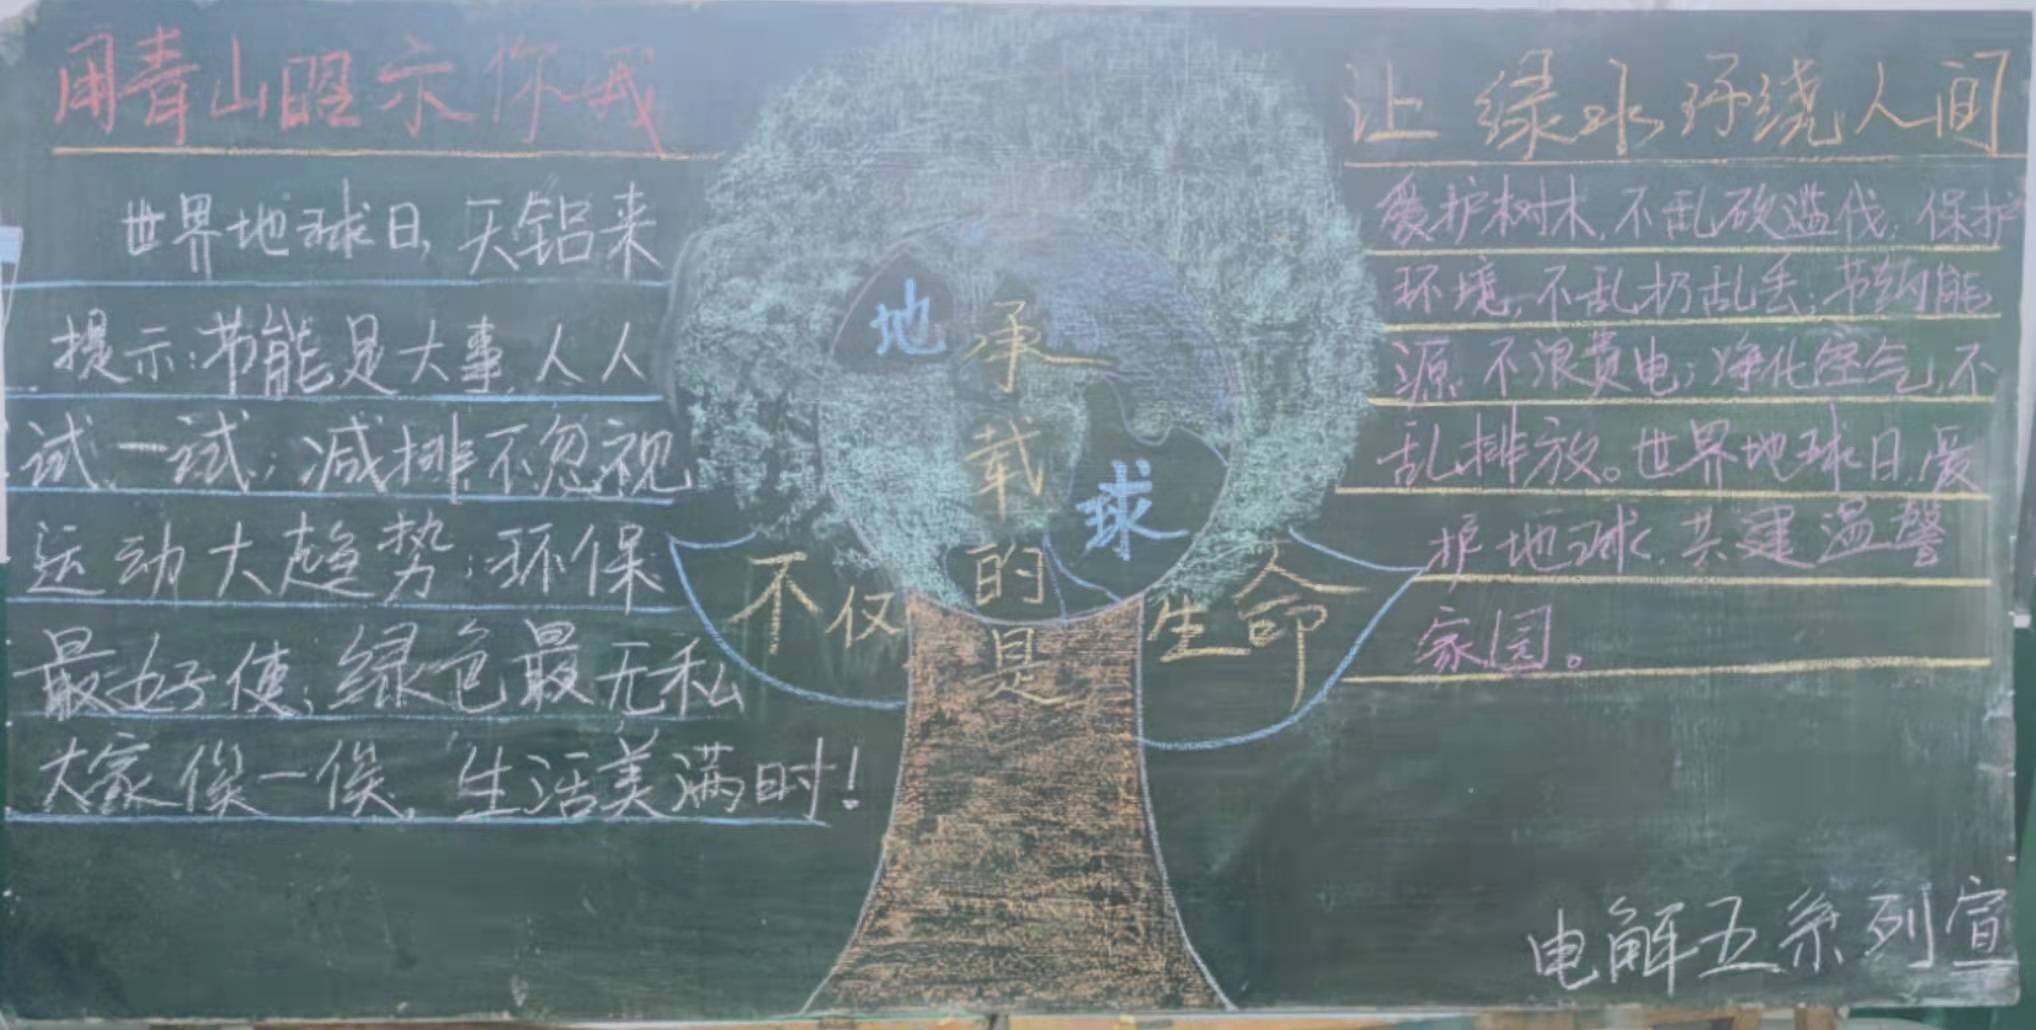 用青山昭示你我
世界地球日,天铝来
提示:节能是大事,人人
试一试;减排不忽视
运动大趋势;环保
最好使;绿色最无私
大家俟一俟,生活美满时!
地球
承载的是
不仅
生命
让绿水环绕人间
爱护树木,不乱砍滥伐,保护
环境,不乱扔乱丢;节约能
源,不浪费电;净化空气,不
乱排放。世界地球日,爱
护地球,共建温馨
家园。
电解五系列宣